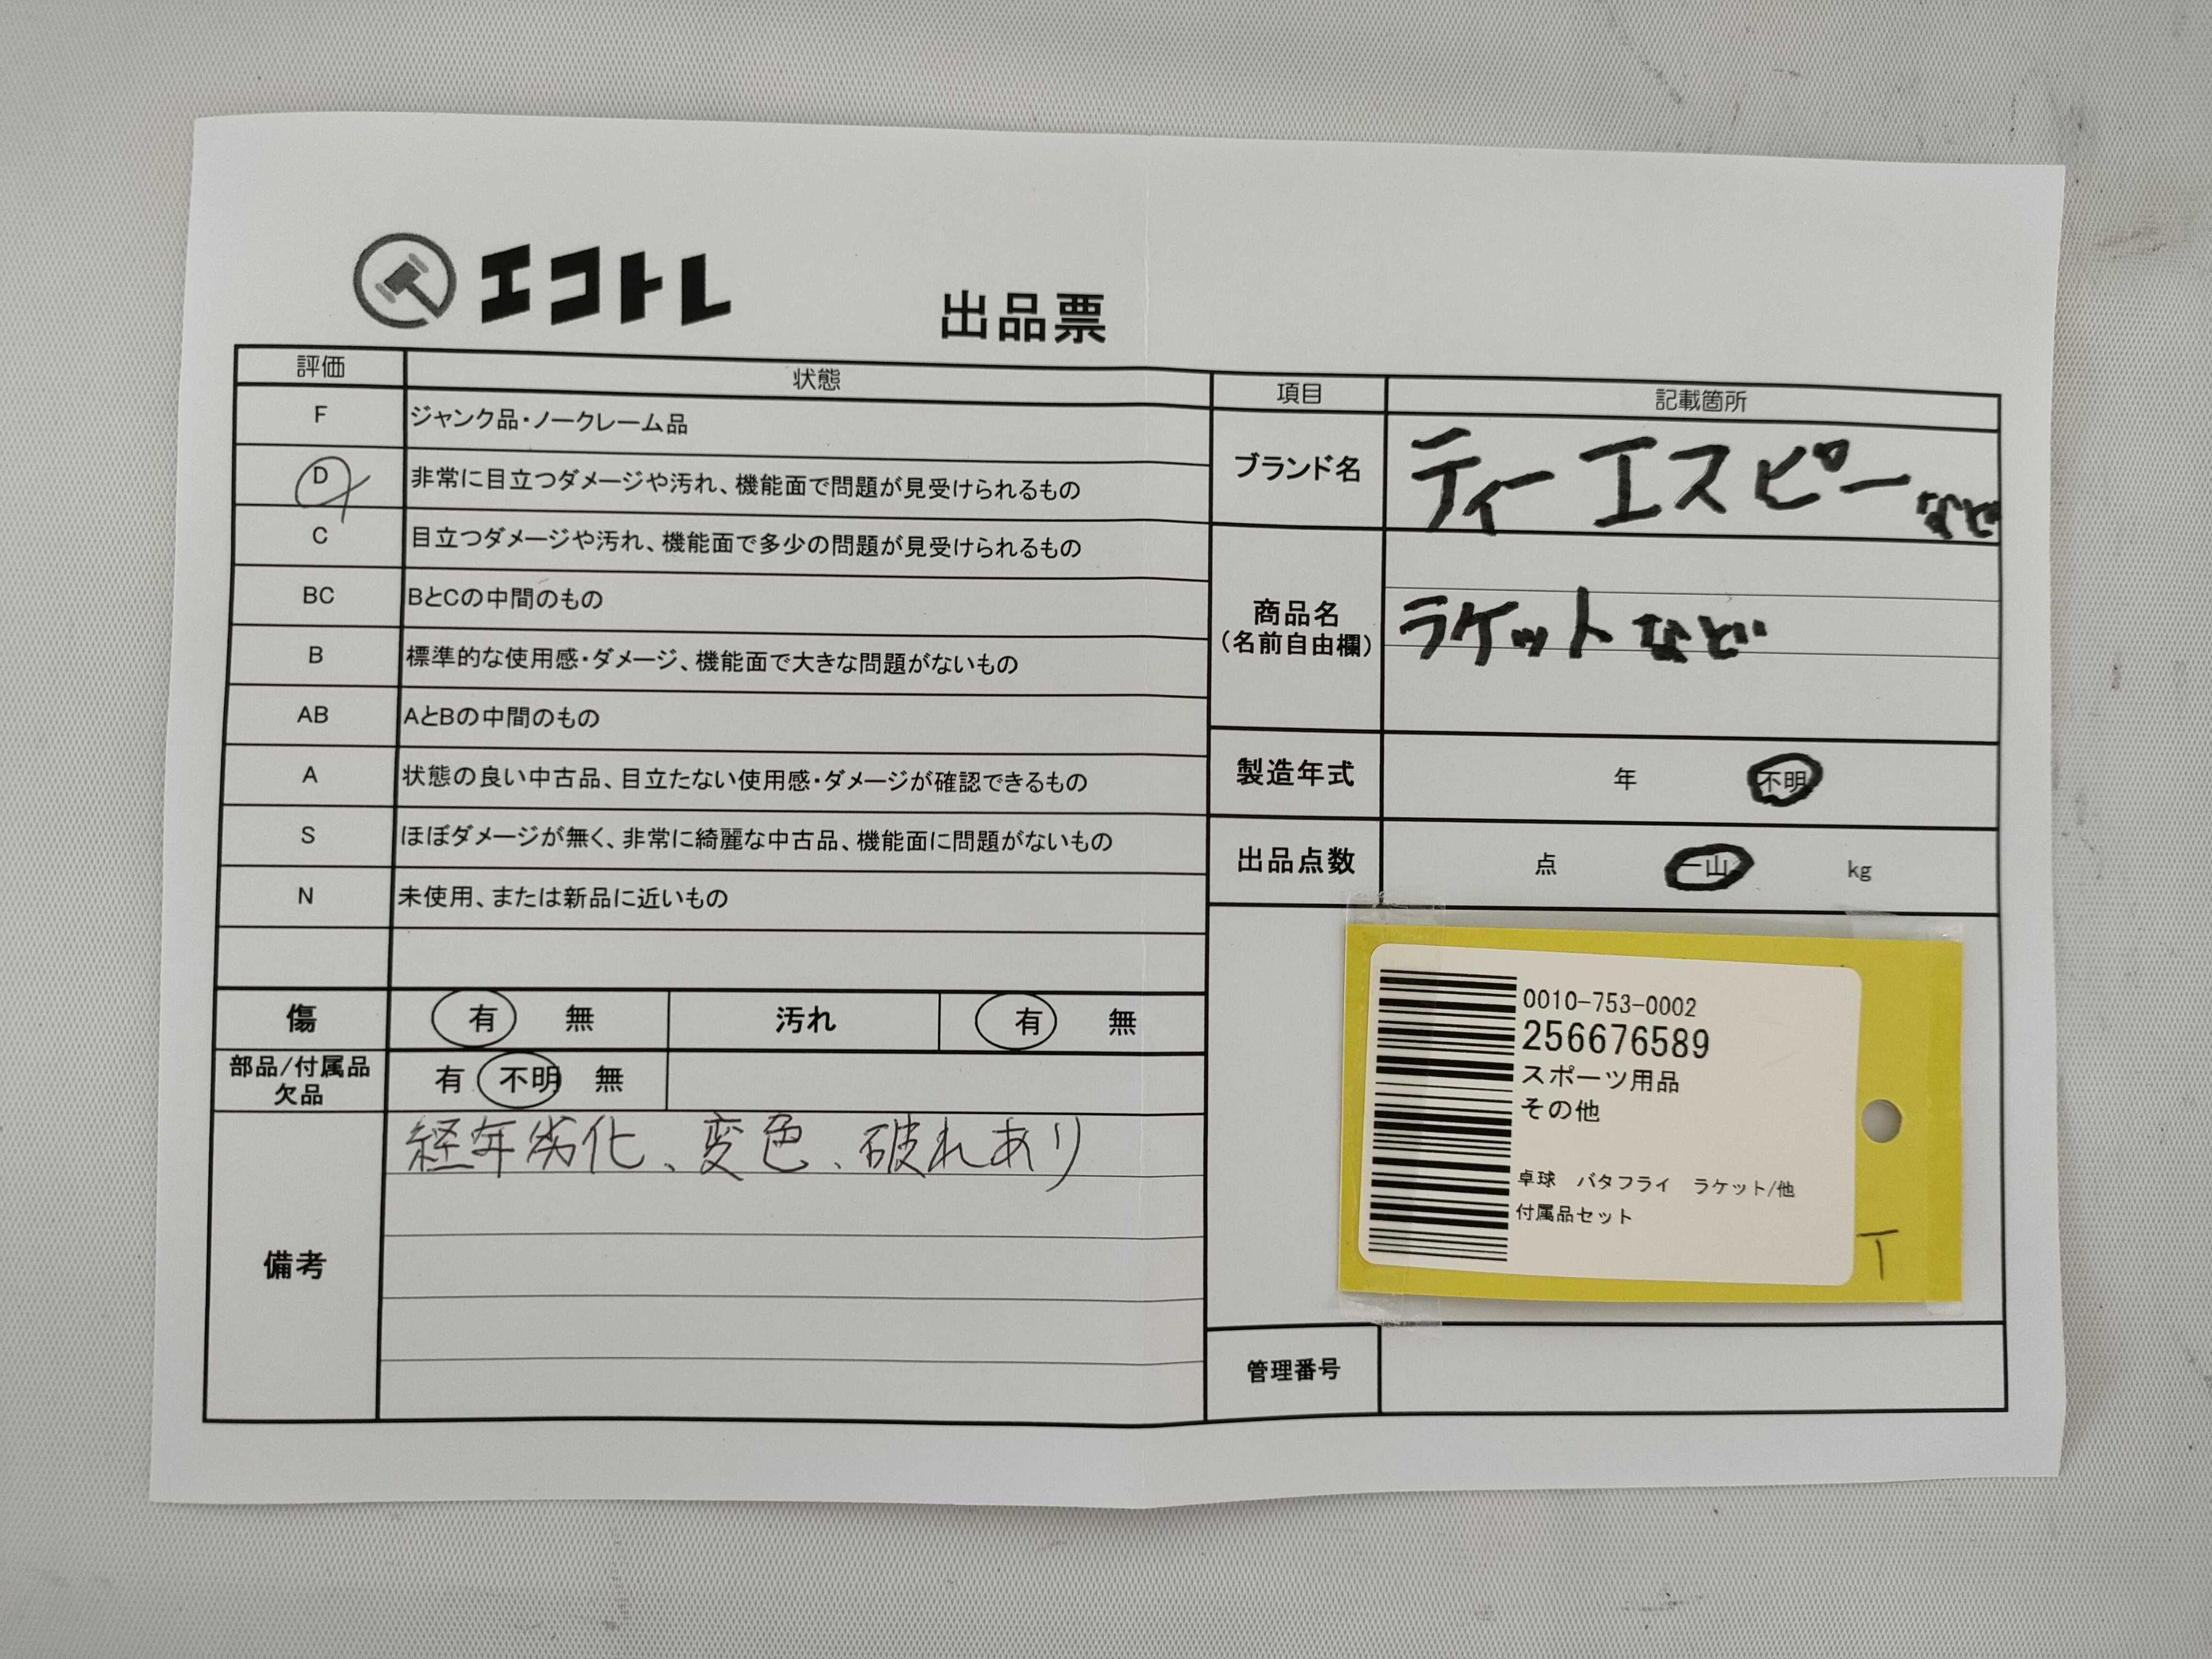 エコトレ
出品票
評価 状態
F ジャンク品・ノークレーム品
D 非常に目立つダメージや汚れ、機能面で問題が見受けられるもの
C 目立つダメージや汚れ、機能面で多少の問題が見受けられるもの
BC BとCの中間のもの
B 標準的な使用感・ダメージ、機能面で大きな問題がないもの
AB AとBの中間のもの
A 状態の良い中古品、目立たない使用感・ダメージが確認できるもの
S ほぼダメージが無く、非常に綺麗な中古品、機能面に問題がないもの
N 未使用、または新品に近いもの
傷 有 無 汚れ 有 無
部品/付属品
欠品
有 不明 無
備考
経年劣化、変色、破れあり
項目 記載箇所
ブランド名 ティーエスピーなど
商品名
(名前自由欄)
ラケットなど
製造年式 年 不明
出品点数 点 一山 kg
0010-753-0002
256676589
スポーツ用品
その他
卓球 バタフライ ラケット/他
付属品セット
T
管理番号